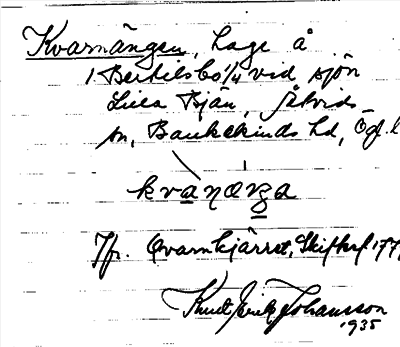 Kvarnängen, hage å
1 Bertilsbo 1/4 vid sjön
Lilla Bjän, Åtvids
sn, Bankekinds hd, Ögl. l
kvanæŋa
Jfr. Qvarnkjärret, Skifteskt 177
Knut Erik Johansson
1935